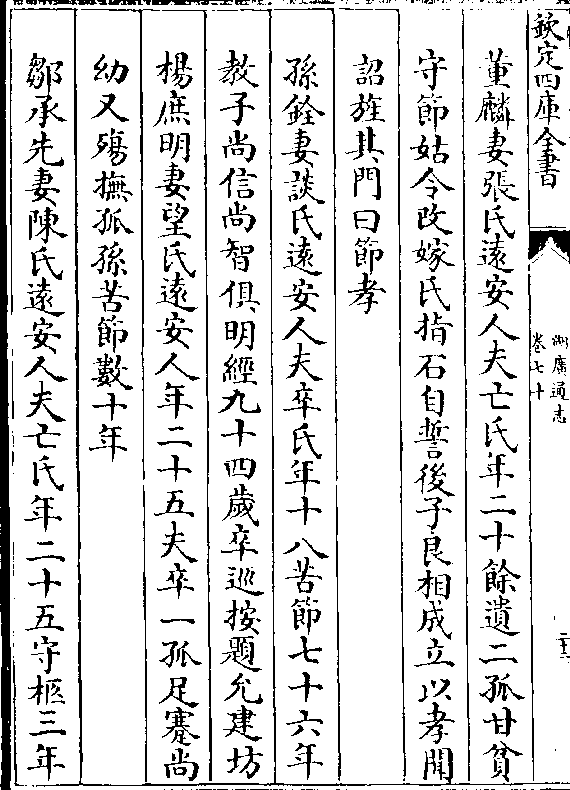 欽定四庫全書
湖廣通志
卷七十
董麟妻張氏遠安人夫亡氏年二十餘遺二孤甘貧
守節姑令改嫁氏指石自誓後子良相成立以孝聞
詔旌其門曰節孝
孫銓妻談氏遠安人夫卒氏年十八苦節七十六年
教子尚信尚智俱明經九十四歲卒巡按題允建坊
楊庶明妻望氏遠安人年二十五夫卒一孤足蹇尚
幼又殤撫孤孫苦節數十年
鄒承先妻陳氏遠安人夫亡氏年二十五守柩三年